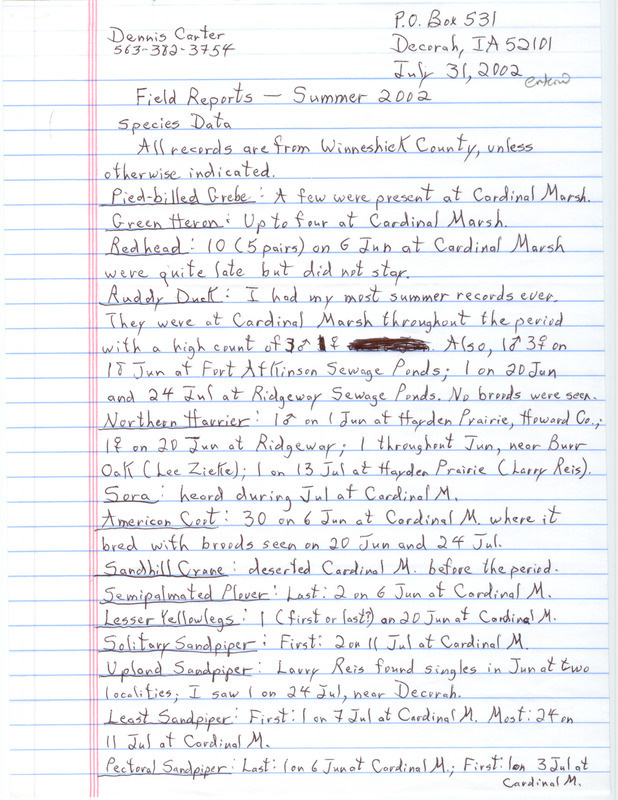 Dennis Carter
563-382-3754
P.O. Box 531
Decorah, IA 52101
July 31, 2002
entered
Field Reports — Summer 2002
Species Data
All records are from Winneshiek County, unless
otherwise indicated.
Pied-billed Grebe: A few were present at Cardinal Marsh.
Green Heron: Up to four at Cardinal Marsh.
Redhead: 10 (5 pairs) on 6 Jun at Cardinal Marsh
were quite late but did not stay.
Ruddy Duck: I had my most summer records ever.
They were at Cardinal Marsh throughout the period
with a high count of 3♂ 1♀ . Also, 1♂ 3♀ on
18 Jun at Fort Atkinson Sewage Ponds; 1 on 20 Jun
and 24 Jul at Ridgeway Sewage Ponds. No broods were seen.
Northern Harrier: 1♂ on 1 Jun at Hayden Prairie, Howard Co.;
1♀ on 20 Jun at Ridgeway; 1 throughout Jun, near Burr
Oak (Lee Zieke); 1 on 13 Jul at Hayden Prairie (Larry Reis).
Sora: heard during Jul at Cardinal M.
American Coot: 30 on 6 Jun at Cardinal M. where it
bred with broods seen on 20 Jun and 24 Jul.
Sandhill Crane: deserted Cardinal M. before the period.
Semipalmated Plover: Last: 2 on 6 Jun at Cardinal M.
Lesser Yellowlegs: 1 (first or last?) on 20 Jun at Cardinal M.
Solitary Sandpiper: First: 2 on 11 Jul at Cardinal M.
Upland Sandpiper: Larry Reis found singles in Jun at two
localities; I saw 1 on 24 Jul, near Decorah.
Least Sandpiper: First: 1 on 7 Jul at Cardinal M. Most: 24 on
11 Jul at Cardinal M.
Pectoral Sandpiper: Last: 1 on 6 Jun at Cardinal M.; First: 1 on 3 Jul at
Cardinal M.